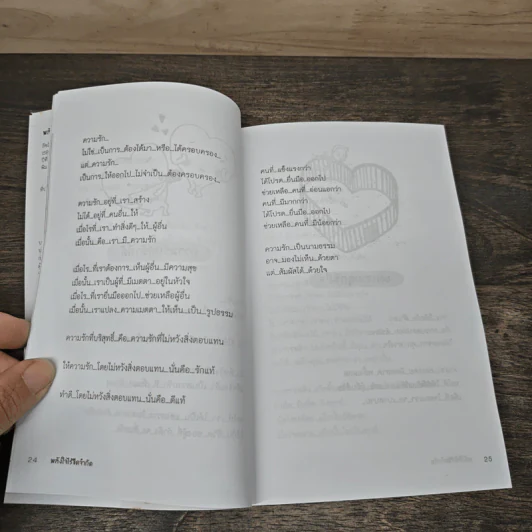 ความรัก..
ไม่ใช่..เป็นการ..ต้องได้มา..หรือ..ได้ครอบครอง..
แต่..ความรัก..
เป็นการ..ให้ออกไป..ไม่จำเป็น..ต้องครอบครอง..
ความรัก..อยู่ที่..เรา..สร้าง
ไม่ได้..อยู่ที่..คนอื่น..ให้
เมื่อไรที่..เรา..ทำสิ่งดีๆ..ให้..ผู้อื่น
เมื่อนั้น..คือ..เรา..มี..ความรัก
เมื่อไร..ที่เราต้องการ..เห็นผู้อื่น..มีความสุข
เมื่อนั้น..เราเป็นผู้ที่..มีเมตตา..อยู่ในหัวใจ
เมื่อไร..ที่เรายื่นมือออกไป..ช่วยเหลือผู้อื่น
เมื่อนั้น..เราแปลง..ความเมตตา..ให้เห็น..เป็น..รูปธรรม
ความรักที่บริสุทธิ์..คือ..ความรักที่ไม่หวังสิ่งตอบแทน
ให้ความรัก..โดยไม่หวังสิ่งตอบแทน..นั่นคือ..รักแท้
ทำดี..โดยไม่หวังสิ่งตอบแทน..นั่นคือ..ดีแท้
24
คนที่..แข็งแรงกว่า
ได้โปรด..ยื่นมือ..ออกไป
ช่วยเหลือ..คนที่..อ่อนแอกว่า
คนที่..มีมากกว่า
ได้โปรด..ยื่นมือ..ออกไป
ช่วยเหลือ..คนที่..มีน้อยกว่า
ความรัก..เป็นนามธรรม
อาจ..มองไม่เห็น..ด้วยตา
แต่..สัมผัสได้..ด้วยใจ
25